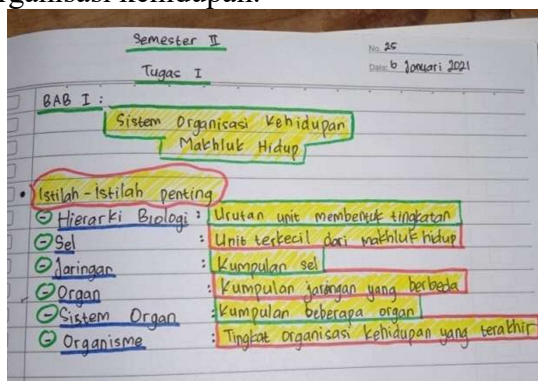 rganisasi kehidupan.
Semester II
No. 25
Tugas I
Date: 6 Januari 2021
BAB I :
Sistem Organisasi Kehidupan
Makhluk Hidup
• Istilah-Istilah penting
Hierarki Biologi : Urutan unit membentuk tingkatan
Sel : Unit terkecil dari makhluk hidup
Jaringan : Kumpulan sel
Organ : Kumpulan jaringan yang berbeda
Sistem Organ : Kumpulan beberapa organ
Organisme : Tingkat organisasi kehidupan yang terakhir